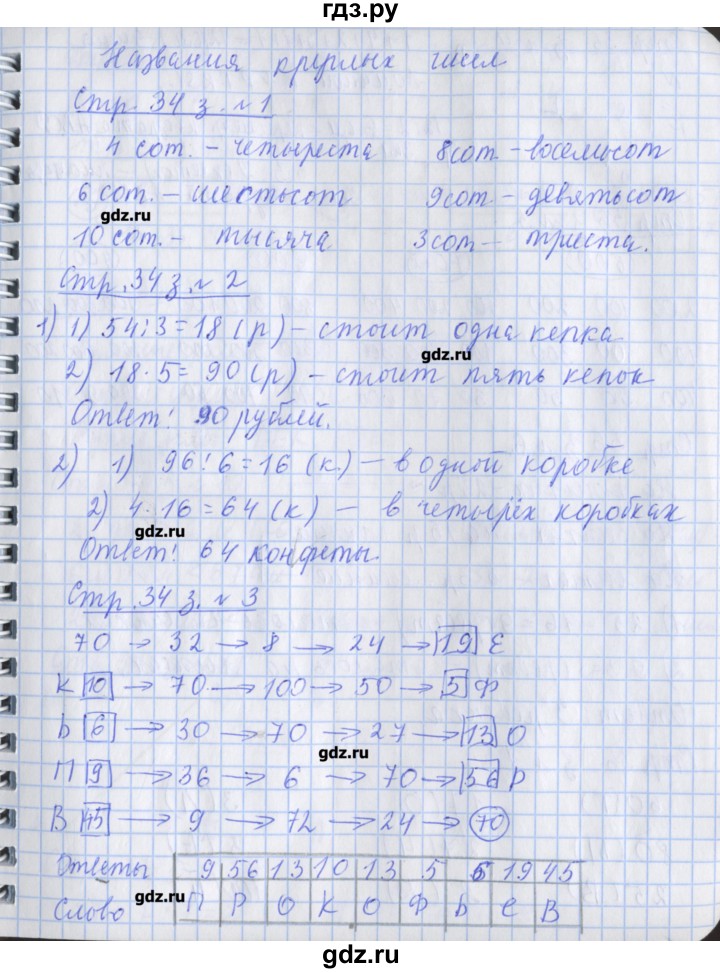 гдз.ру
Названия круглых чисел
Стр. 34 з. №1
4 сот. – четыреста 8сот – восемьсот
6 сот. – шестьсот 9сот – девятьсот
gdz.ru
10 сот. – тысяча 3сот – триста.
Стр. 34 з. № 2
1) 1) 54:3=18 (р) – стоит одна кепка
gdz.ru
2) 18·5= 90 (р) – стоит пять кепок
Ответ: 90 рублей.
2) 1) 96:6=16 (к.) – в одной коробке
2) 4·16=64 (к) – в четырёх коробках
gdz.ru
Ответ: 64 конфеты.
Стр. 34 з. № 3
70 → 32 → 8 → 24 → 19 Е
К 10 → 70 → 100 → 50 → 5 Ф
Ь 6 → 30 → 70 → 27 → 13 О
gdz.ru
П 9 → 36 → 6 → 70 → 56 Р
В 45 → 9 → 72 → 24 → 70
Ответы 9 56 13 10 13 5 6 19 45
gdz.ru
Слово П Р О К О Ф Ь Е В
gdz.ru